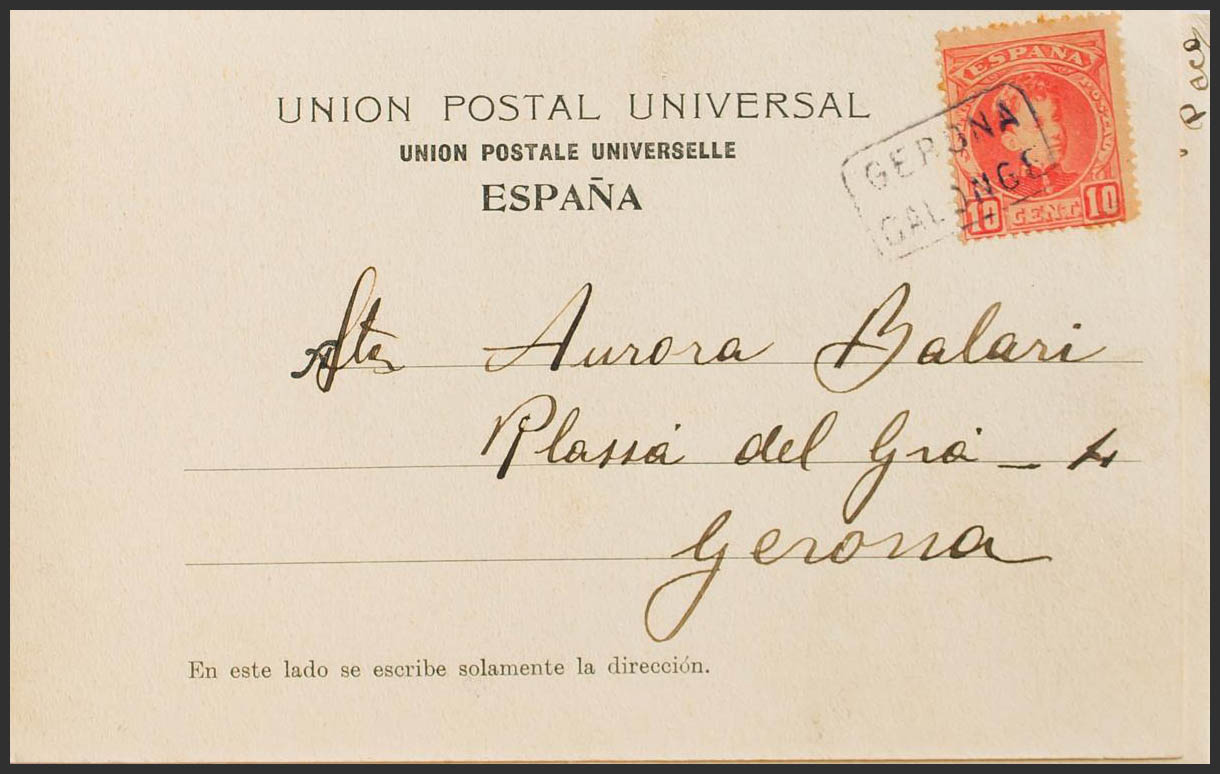 UNION POSTAL UNIVERSAL
UNION POSTALE UNIVERSELLE
ESPAÑA
ESPAÑA
10 CENT 10
GERONA
CALONGE
Aurora Balari
Plassa del Gra - 4
Gerona
En este lado se escribe solamente la dirección.